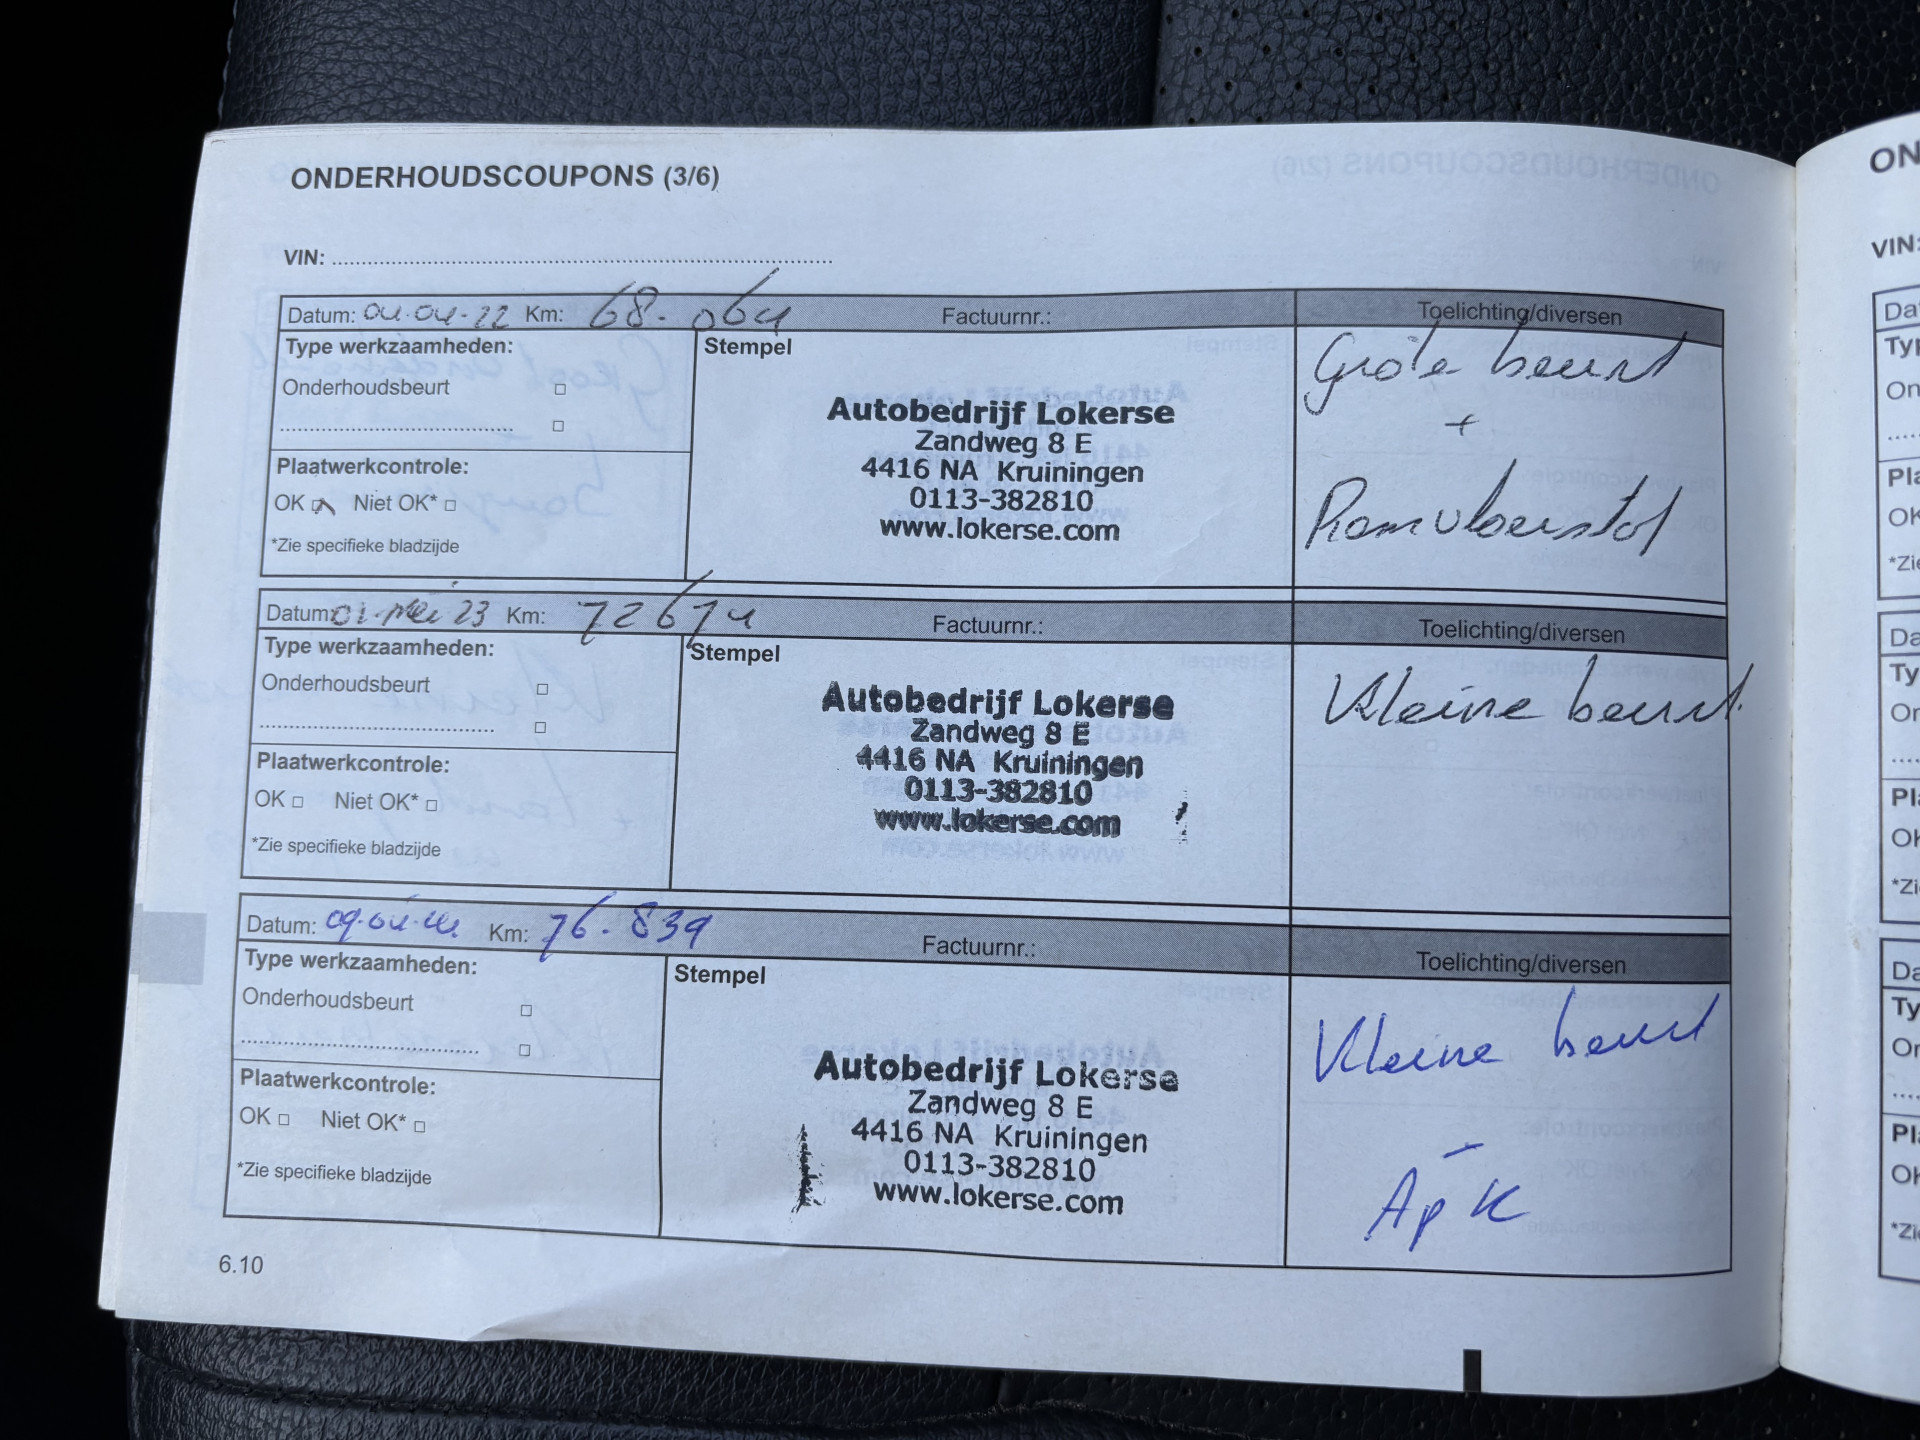 ONDERHOUDSCOUPONS (3/6)
VIN:
Datum: 04.04.22 Km: 68.064 Factuurnr.: Toelichting/diversen
Type werkzaamheden:
Onderhoudsbeurt
Plaatwerkcontrole:
OK Niet OK*
*Zie specifieke bladzijde
Stempel
Autobedrijf Lokerse
Zandweg 8 E
4416 NA Kruiningen
0113-382810
www.lokerse.com
Grote beurt
+
Remvloeistof
Datum: 01. Mei 23 Km: 72674 Factuurnr.: Toelichting/diversen
Type werkzaamheden:
Onderhoudsbeurt
Plaatwerkcontrole:
OK Niet OK*
*Zie specifieke bladzijde
Stempel
Autobedrijf Lokerse
Zandweg 8 E
4416 NA Kruiningen
0113-382810
www.lokerse.com
Kleine beurt
Datum: Km: 76.839 Factuurnr.: Toelichting/diversen
Type werkzaamheden:
Onderhoudsbeurt
Plaatwerkcontrole:
OK Niet OK*
*Zie specifieke bladzijde
Stempel
Autobedrijf Lokerse
Zandweg 8 E
4416 NA Kruiningen
0113-382810
www.lokerse.com
Kleine beurt
-
APK
6.10
VIN: